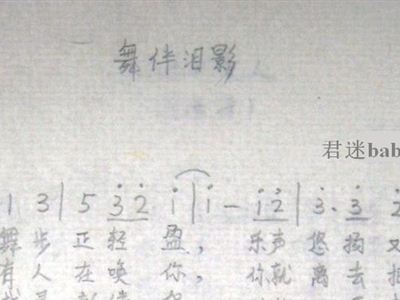 舞伴泪影
君迷bab
1 3 | 5 3̇ 2̇ i | i - i 2̇ | 3̇. 3̇ 2̇
舞步正轻盈，乐声悠扬又
有人在唤你，你就离去把